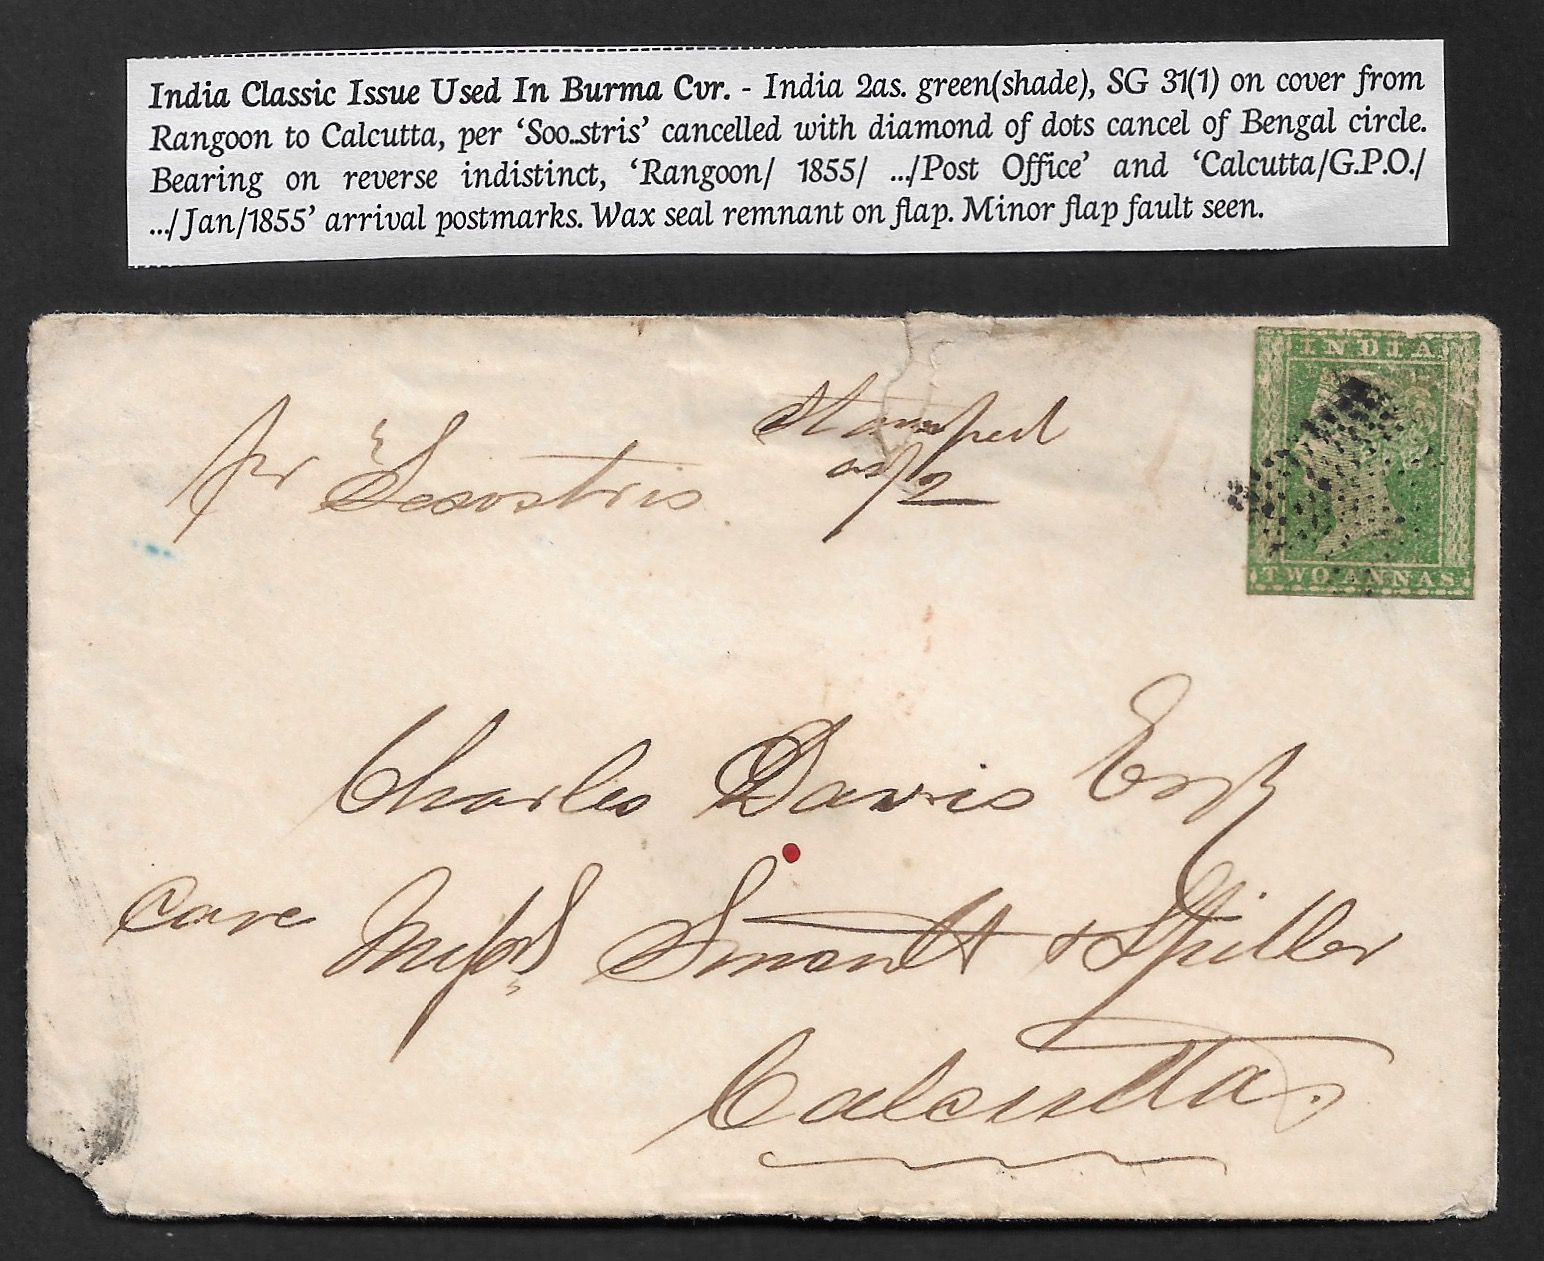 India Classic Issue Used In Burma Cvr. - India 2as. green(shade), SG 31(1) on cover from
Rangoon to Calcutta, per ‘Soo..stris’ cancelled with diamond of dots cancel of Bengal circle.
Bearing on reverse indistinct, ‘Rangoon/ 1855/ .../Post Office’ and ‘Calcutta/G.P.O./
.../Jan/1855’ arrival postmarks. Wax seal remnant on flap. Minor flap fault seen.
INDIA
TWO ANNAS
Stamped
as/2
pr Sesostris
Charles Davis Esqr
Care Messrs Smoult & Spiller
Calcutta.